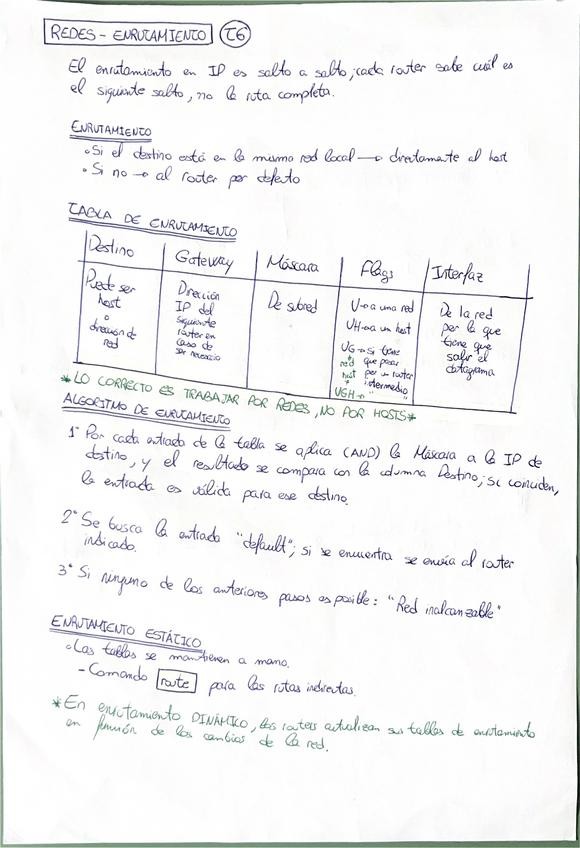 REDES - ENRUTAMIENTO T6
El enrutamiento en IP es salto a salto; cada router sabe cuál es
el siguiente salto, no la ruta completa.
ENRUTAMIENTO
• Si el destino está en la misma red local → directamente al host
• Si no → al router por defecto
TABLA DE ENRUTAMIENTO
Destino Gateway Máscara Flags Interfaz
Puede ser
host
o
dirección de
red
Dirección
IP del
siguiente
router en
caso de
ser necesario
De subred
U → a una red
UH → a un host
UG → si tiene
red que pasar
host por un router
intermedio
UGH → " "
De la red
por la que
tiene que
salir el
datagrama
* LO CORRECTO ES TRABAJAR POR REDES, NO POR HOSTS *
ALGORITMO DE ENRUTAMIENTO
1º Por cada entrada de la tabla se aplica (AND) la Máscara a la IP de
destino, y el resultado se compara con la columna Destino; si coinciden,
la entrada es válida para ese destino.
2º Se busca la entrada "default"; si se encuentra se envía al router
indicado.
3º Si ninguno de los anteriores pasos es posible: "Red inalcanzable"
ENRUTAMIENTO ESTÁTICO
• Las tablas se mantienen a mano.
- Comando route para las rutas indirectas.
* En enrutamiento DINÁMICO, los routers actualizan sus tablas de enrutamiento
en función de los cambios de la red.